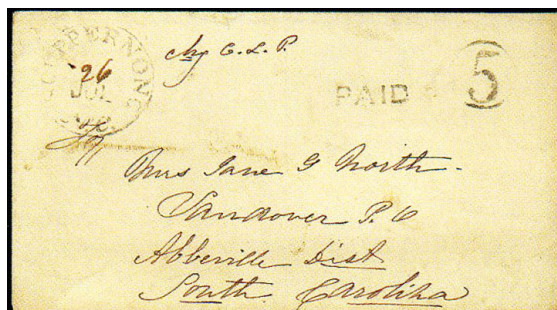 SCUPPERNONG
26
JUL
N.C.
Chg C. L. P.
PAID
5
Mrs Jane G North
P. O
Abbeville Dist
South Carolina